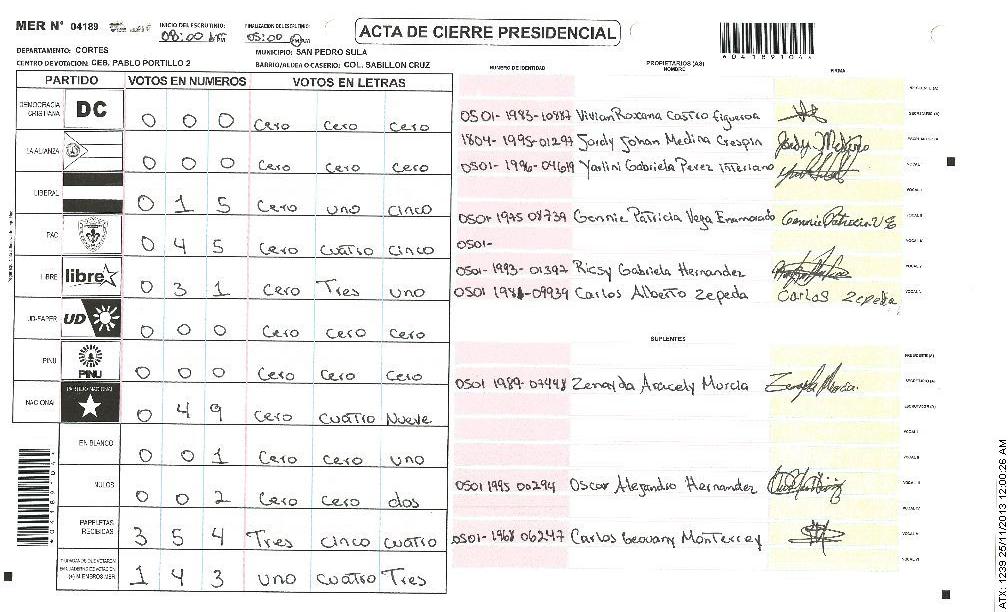 MER N° 04189 INICIO DEL ESCRUTINIO: 08:00 FINALIZACION DEL ESCRUTINIO: 05:00 PM
ACTA DE CIERRE PRESIDENCIAL
DEPARTAMENTO: CORTES MUNICIPIO: SAN PEDRO SULA
CENTRO DE VOTACION: CEB. PABLO PORTILLO 2 BARRIO/ALDEA O CASERIO: COL. SABILLON CRUZ
PARTIDO VOTOS EN NUMEROS VOTOS EN LETRAS
DEMOCRACIA CRISTIANA DC 0 0 0 Cero Cero Cero
LA ALIANZA 0 0 0 Cero Cero Cero
LIBERAL 0 1 5 Cero uno cinco
PAC 0 4 5 Cero cuatro cinco
LIBRE libre 0 3 1 Cero Tres uno
UD-FAPER UD 0 0 0 Cero Cero Cero
PINU PINU 0 0 0 Cero Cero Cero
NACIONAL PARTIDO NACIONAL 0 4 9 Cero cuatro Nueve
EN BLANCO 0 0 1 Cero Cero uno
NULOS 0 0 2 Cero Cero dos
PAPELETAS RECIBIDAS 3 5 4 Tres cinco cuatro
(+) MIEMBROS MER 1 4 3 uno cuatro Tres
NUMERO DE IDENTIDAD PROPIETARIOS (AS) NOMBRE FIRMA
0501-1983-10887 Vivian Roxana Castro figueroa
1804-1995-01297 Jordy Johan Medina Crespin Jordy Medina
0501-1996-04619 Yarlini Gabriela Perez Interiano
0501 1975 08739 Gennie Patricia Vega Enamorado Gennie Patricia V E
0501-
0501-1993-01397 Ricsy Gabriela Hernandez
0501 1981-09939 Carlos Alberto Zepeda Carlos Zepeda
SUPLENTES
0501 1989-07448 Zenayda Aracely Murcia
0501 1995 00294 Oscar Alejandro Hernandez
0501-1968 06247 Carlos Geovany Monterrey
ATX: 1239 25/11/2013 12:00:26 AM